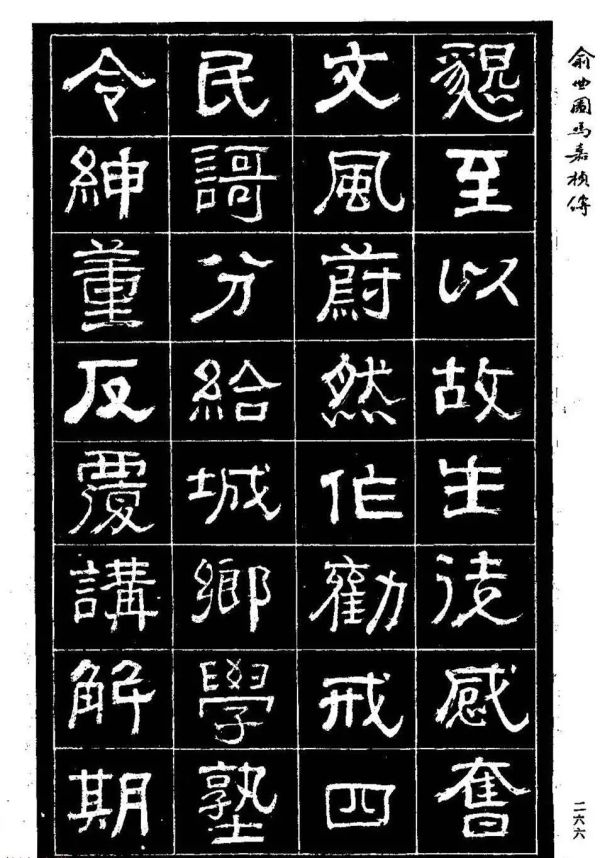 俞曲園馮嘉楨傳
懇至以故生徒感奮
文風蔚然作勸戒四
民謌分給城鄉學塾
令紳董反覆講解期
二六六